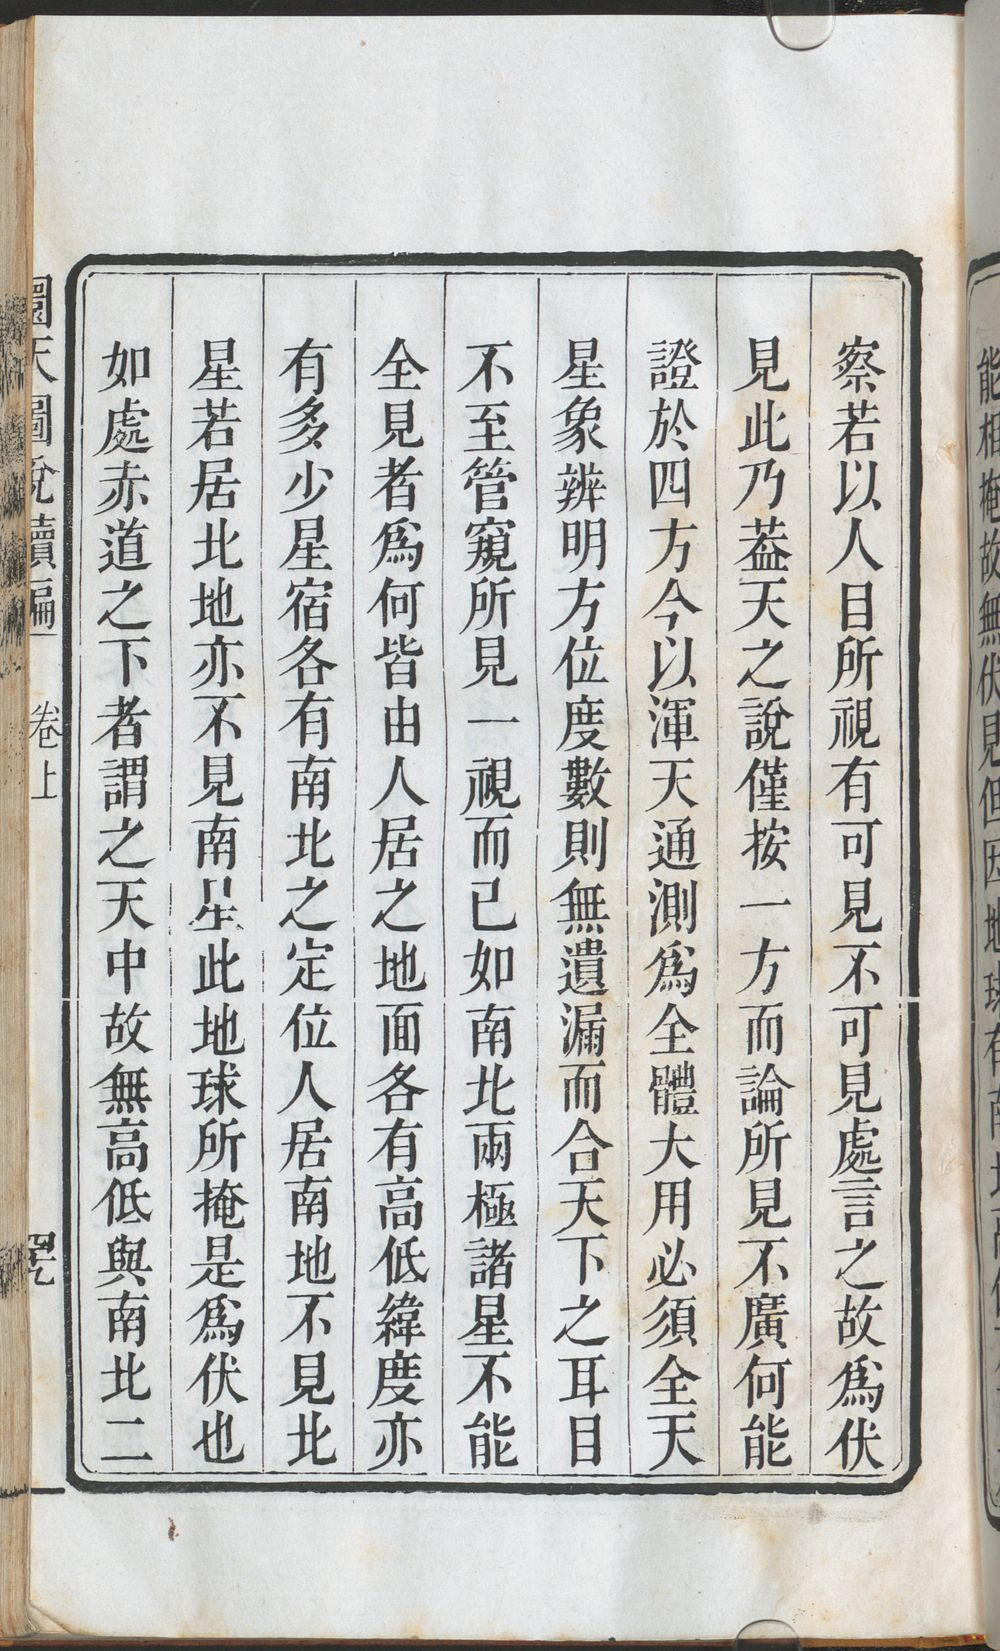 察若以人目所視有可見不可見處言之故為伏
見此乃葢天之說僅按一方而論所見不廣何能
證於四方今以渾天通測為全體大用必須全天
星象辨明方位度數則無遺漏而合天下之耳目
不至管窺所見一視而已如南北兩極諸星不能
全見者為何皆由人居之地面各有高低緯度亦
有多少星宿各有南北之定位人居南地不見北
星若居北地亦不見南星此地球所掩是為伏也
如處赤道之下者謂之天中故無高低與南北二
圜天圖說續編 卷上
能相掩故無伏見但因地球有